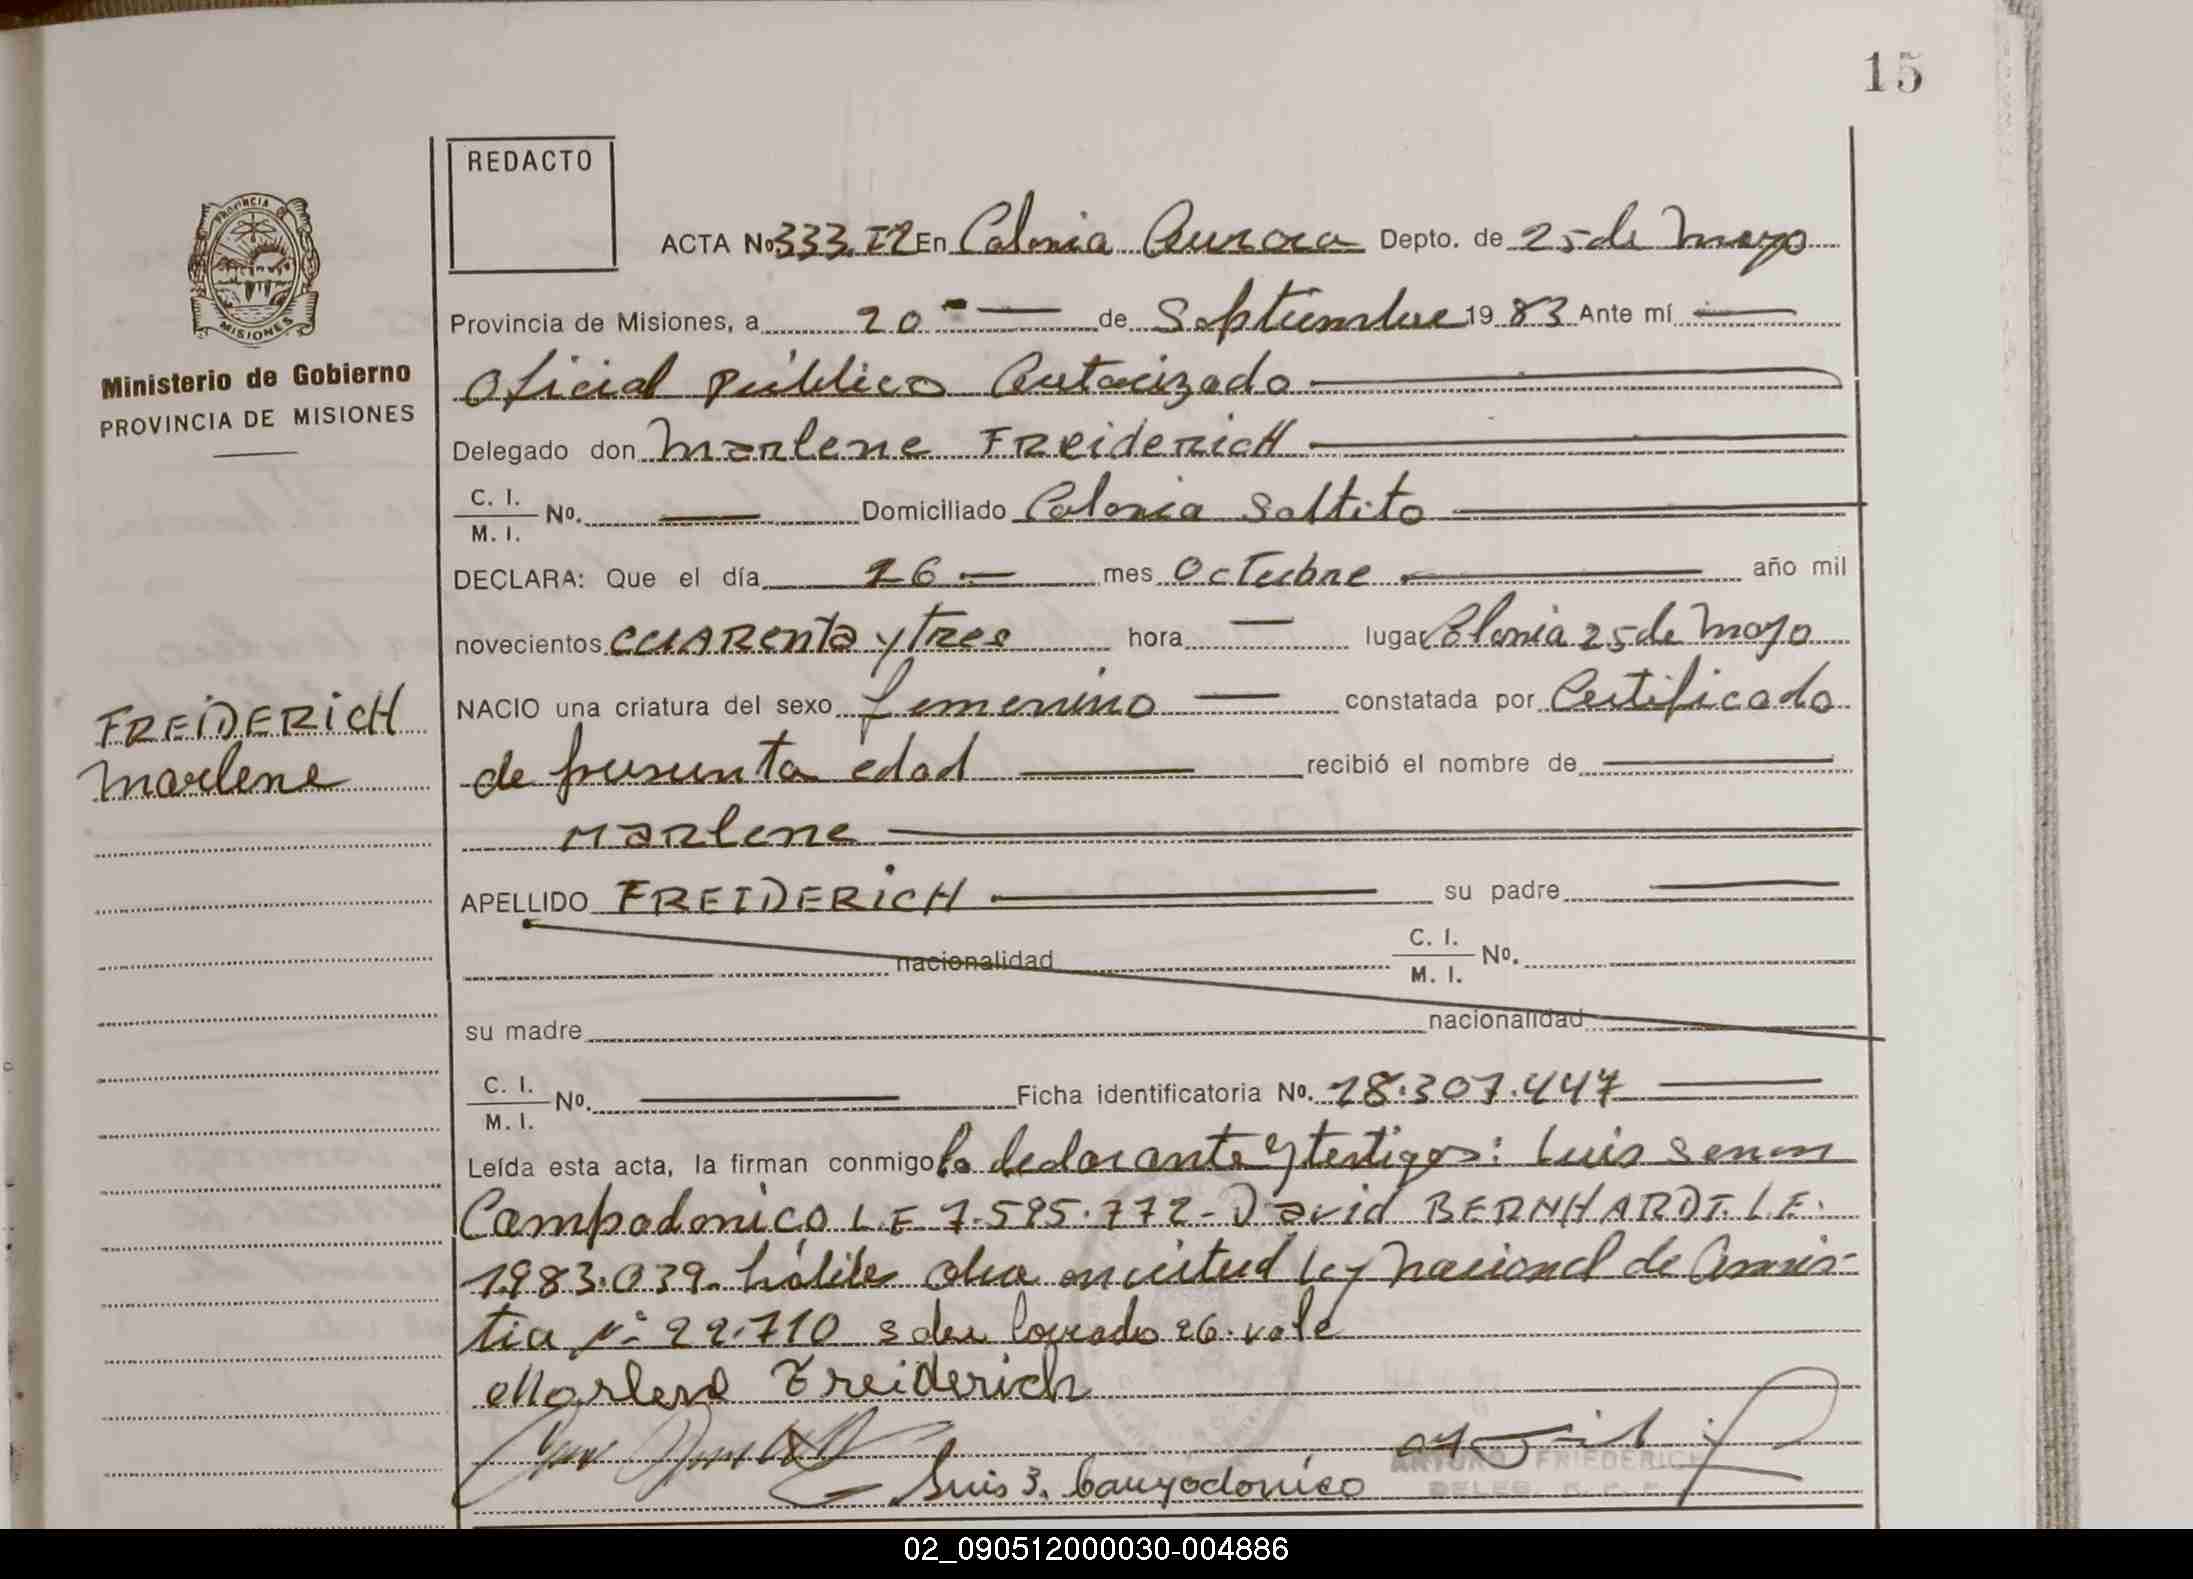 15
REDACTO
ACTA No 333. T2 En Colonia Aurora Depto. de 25 de Mayo
PROVINCIA DE
MISIONES
Provincia de Misiones, a 20 de Septiembre 1983 Ante mí
Ministerio de Gobierno
PROVINCIA DE MISIONES
Oficial Público Autorizado
Delegado don Marlene FREIDERICH
C. I.
M. I. No. Domiciliado Colonia Saltito
DECLARA: Que el día 26 mes Octubre año mil
novecientos CUARENTA y TRES hora lugar Colonia 25 de Mayo
FREIDERICH
Marlene
NACIO una criatura del sexo femenino constatada por Certificado
de presunta edad recibió el nombre de
MARLENE
APELLIDO FREIDERICH su padre
nacionalidad C. I.
M. I. No.
su madre nacionalidad
C. I.
M. I. No. Ficha identificatoria No. 18.307.447
Leída esta acta, la firman conmigo la declarante y testigos: Luis
Campodonico L.E 7.595.772 - David BERNHARDT. L.E.
1983.039. hábiles en virtud ley Nacional de Amnis-
tia Nº 22.710 26. vale
Marlene Freiderich
Luis Z. Campodonico
ARTURO FRIEDERICH
02_090512000030-004886